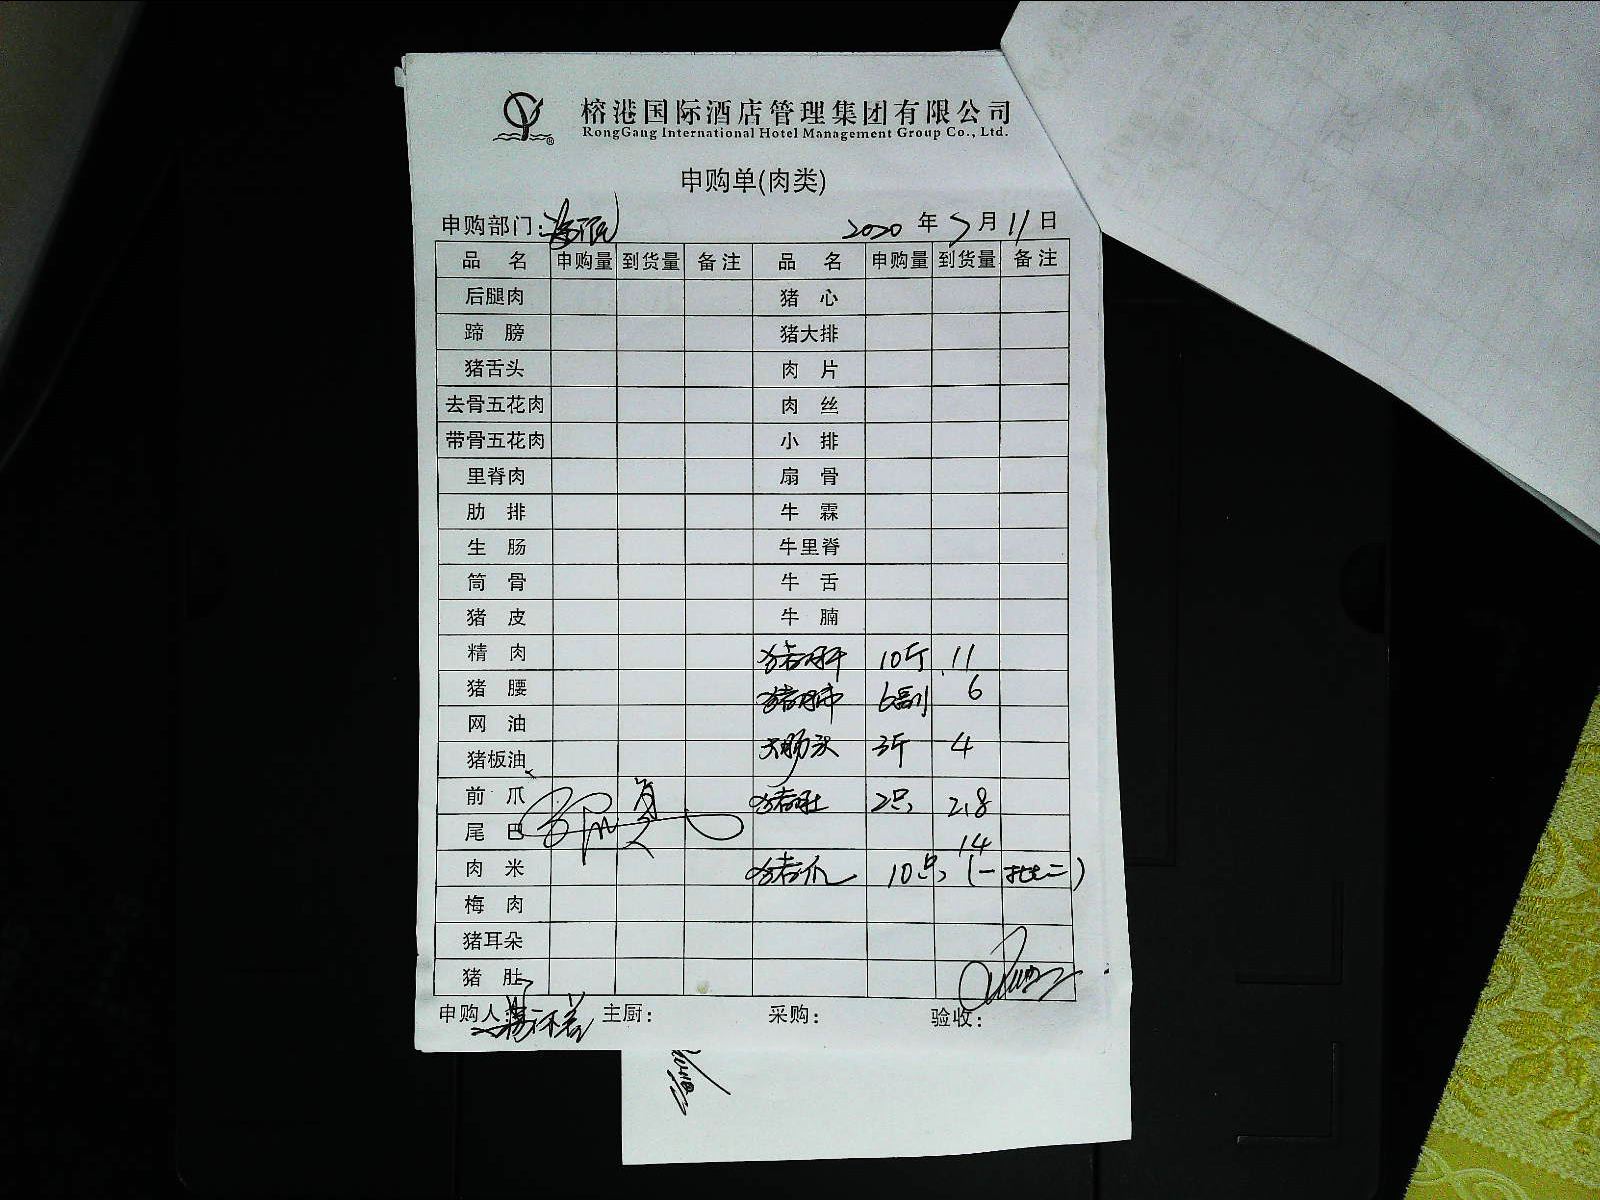 榕港国际酒店管理集团有限公司
RongGang International Hotel Management Group Co., Ltd.
申购单(肉类)
申购部门: 2020 年 5 月 11 日
品 名 申购量 到货量 备注 品 名 申购量 到货量 备注
后腿肉 猪 心
蹄 膀 猪大排
猪舌头 肉 片
去骨五花肉 肉 丝
带骨五花肉 小 排
里脊肉 扇 骨
肋 排 牛 霖
生 肠 牛里脊
筒 骨 牛 舌
猪 皮 牛 腩
精 肉 猪肝 10斤 11
猪 腰 猪肺 6副 6
网 油
猪板油 大肠头 3斤 4
前 爪 猪肚 2只 2.8
尾 巴 14
肉 米 猪爪 10只 (一批二)
梅 肉
猪耳朵
猪 肚
申购人: 主厨: 采购: 验收: